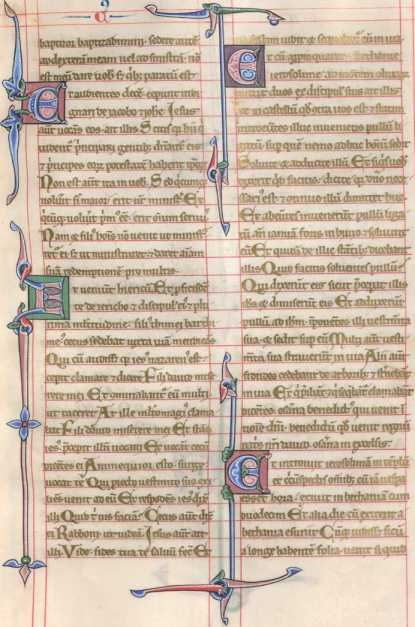 baptizor baptizabimini · sedere aute
ad dexteram meam uel ad sinistra · no
est meu dare uob s; qb; paratu est ·
Et audientes dece ceperunt indi
gnari de iacobo & iohe. Iesus
aut uocans eos ait illis Scitis quia hi q
uident principari gentib; dnant eis
& principes eor potestate habent ipor
Non est aut ita in uob Sed quicuq;
uoluit fi maior erit ur minist Et
quicuq; uoluit pm ee erit omniu seruus
Nam & fili hois no uenit ut ministra
ret ei s; ut ministraret & daret aniam
sua redemptione pro multis ·
Et ueniunt hiericu Et pficisce
te de iericho & discipul ei & plu
rima multitudine · fili thimei barthi
me cecus sedebat iuxta uia mendicas
Qui cu audiss& qa ies nazaren est
cepit clamare & dicere Fili dauid mise
rere mei Et cominabant ei multi
ut taceret At ille multo magis clama
bat Fili dauid miserere mei Et stas
ies pcepit illu uocari Et uocat cecu
dicentes ei Animequior esto · surge
uocat te Qui piecto uestimto suo exi
liens uenit ad eu Et respodes ies dix
illi Quid t uis facia Cecus aut dix
ei Rabboni ut uidea Iesus aut ait
illi Vade · fides tua te saluu fec Et
confestim uidit & sequebat eum in uia
Et cu appinquarent
ierosolime & bethanie ad monte oliuar
mittit duos ex discipul suis & ait illis
Ite i castellu qd contra uos est & statim
introeuntes illuc inuenietis pullu li
gatu sup que nemo adhuc hoim sedit
Soluite & adducite illu Et si qs uob
dixerit qd facitis · dicite qa dno neces
sari est & continuo illu dimittet huc
Et abeuntes inuenerunt pullu liga
tu an ianua foris in biuio & soluut
eu Et quida de illic stantib; dicebant
illis Quid facitis soluentes pullu
Qui dixerunt eis sicut pceperat illis
ihs & dimiserunt eis Et adduxerunt
pullu ad ihm · & iponut illi uestimta
sua · & sedit sup eu Multi aut uesti
mta sua strauerunt in uia Alii aut
frondes cedebant de arborib; & sternebat
in uia Et q pibat & q sequebat clamabat
dicentes · osanna benedict qui uenit i
noie dni · benedictu qd uenit regnu
patris nri dauid · osanna in excelsis ·
Et introiuit ierosolima in teplu
& circuspectis omib; cu ia uespa
esset hora · exiuit in bethania cum
duodecim Et alia die cu exirent a
bethania esuriit Cuq; uidiss& ficu
a longe habente folia · uenit si quid